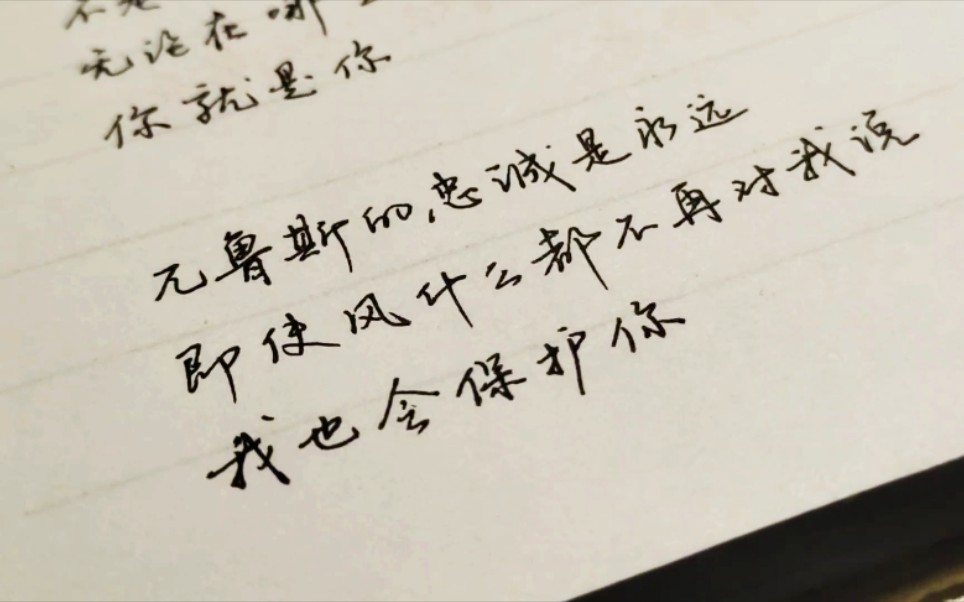 不是
无论在哪
你就是你
兀鲁斯的忠诚是永远
即使风什么都不再对我说
我也会保护你